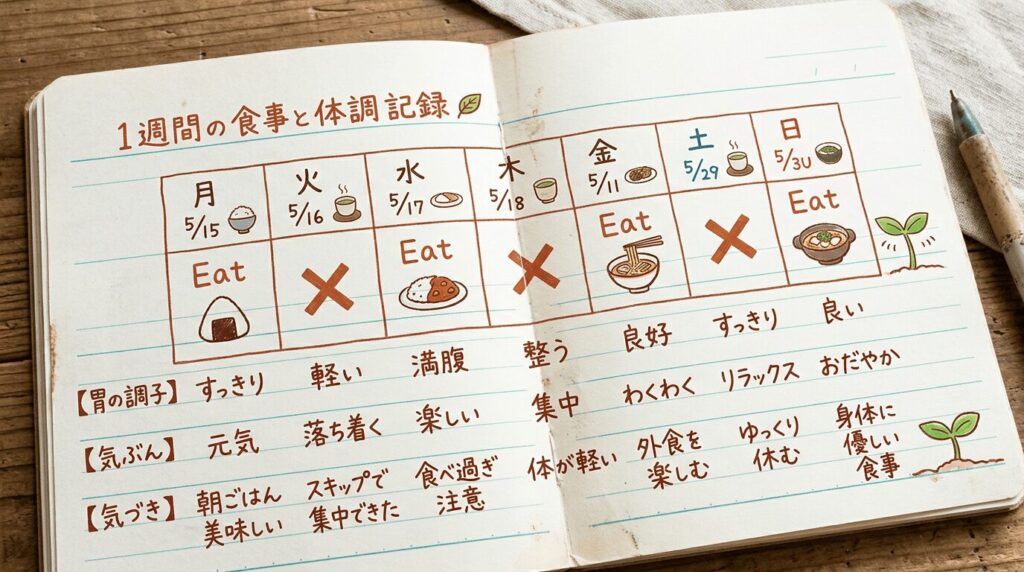 1週間の食事と体調記録
月 火 水 木 金 土 日
5/15 5/16 5/17 5/18 5/11 5/29 5/30
Eat Eat Eat Eat
【胃の調子】 すっきり 軽い 満腹 整う 良好 すっきり 良い
【気ぶん】 元気 落ち着く 楽しい 集中 わくわく リラックス おだやか
【気づき】 朝ごはん スキップで 食べ過ぎ 体が軽い 外食を ゆっくり 身体に
美味しい 集中できた 注意 楽しむ 休む 優しい
食事